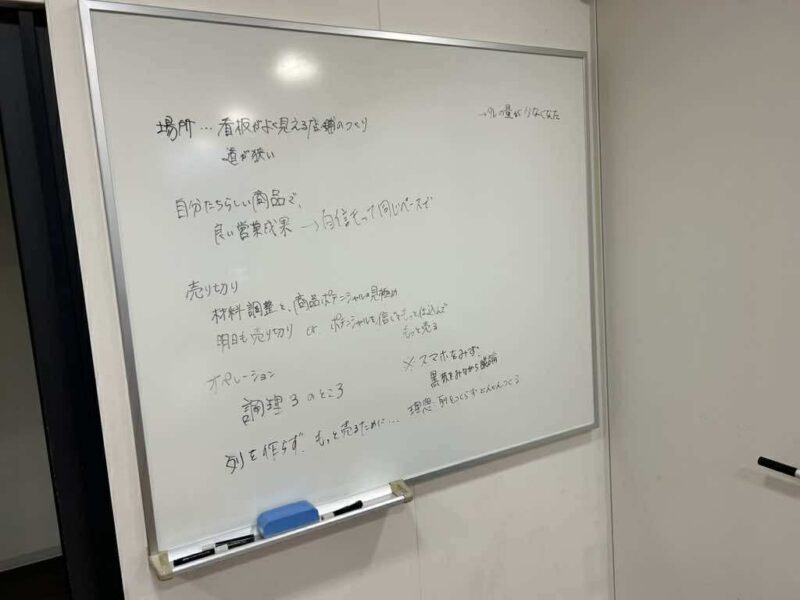 場所…看板がよく見える店舗のつくり
道が狭い
→タレの量が少なくなった
自分たちらしい商品で、
良い営業成果 → 自信もって同じペースで
売り切り
材料調整と、商品ポテンシャルの見極め
明日も売り切り or ポテンシャルを信じてもっと仕込んで
もっと売る
オペレーション
調理3のところ
※スマホをみず、
黒板をみながら議論
列を作らず、もっと売るために… 理想 列をつくらずどんどんつくる